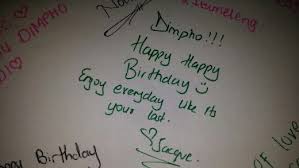 Itumeleng!
DIMPHO
Dimpho!!!
Happy Happy
Birthday ☺
Enjoy everyday like its
your last.
♡ Jacque.
Happy Birthday
OF love